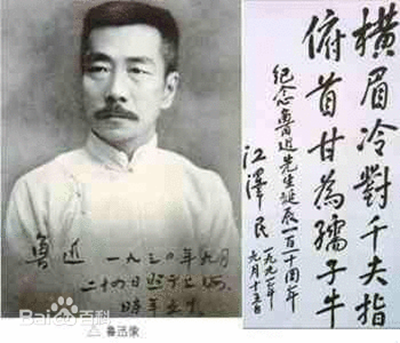 魯迅 一九三〇年九月
二十四日照于上海,
時年五十.
Baidu百科
鲁迅像
橫眉冷對千夫指
俯首甘為孺子牛
紀念魯迅先生誕辰一百一十周年
江澤民
一九九一年
九月十五日